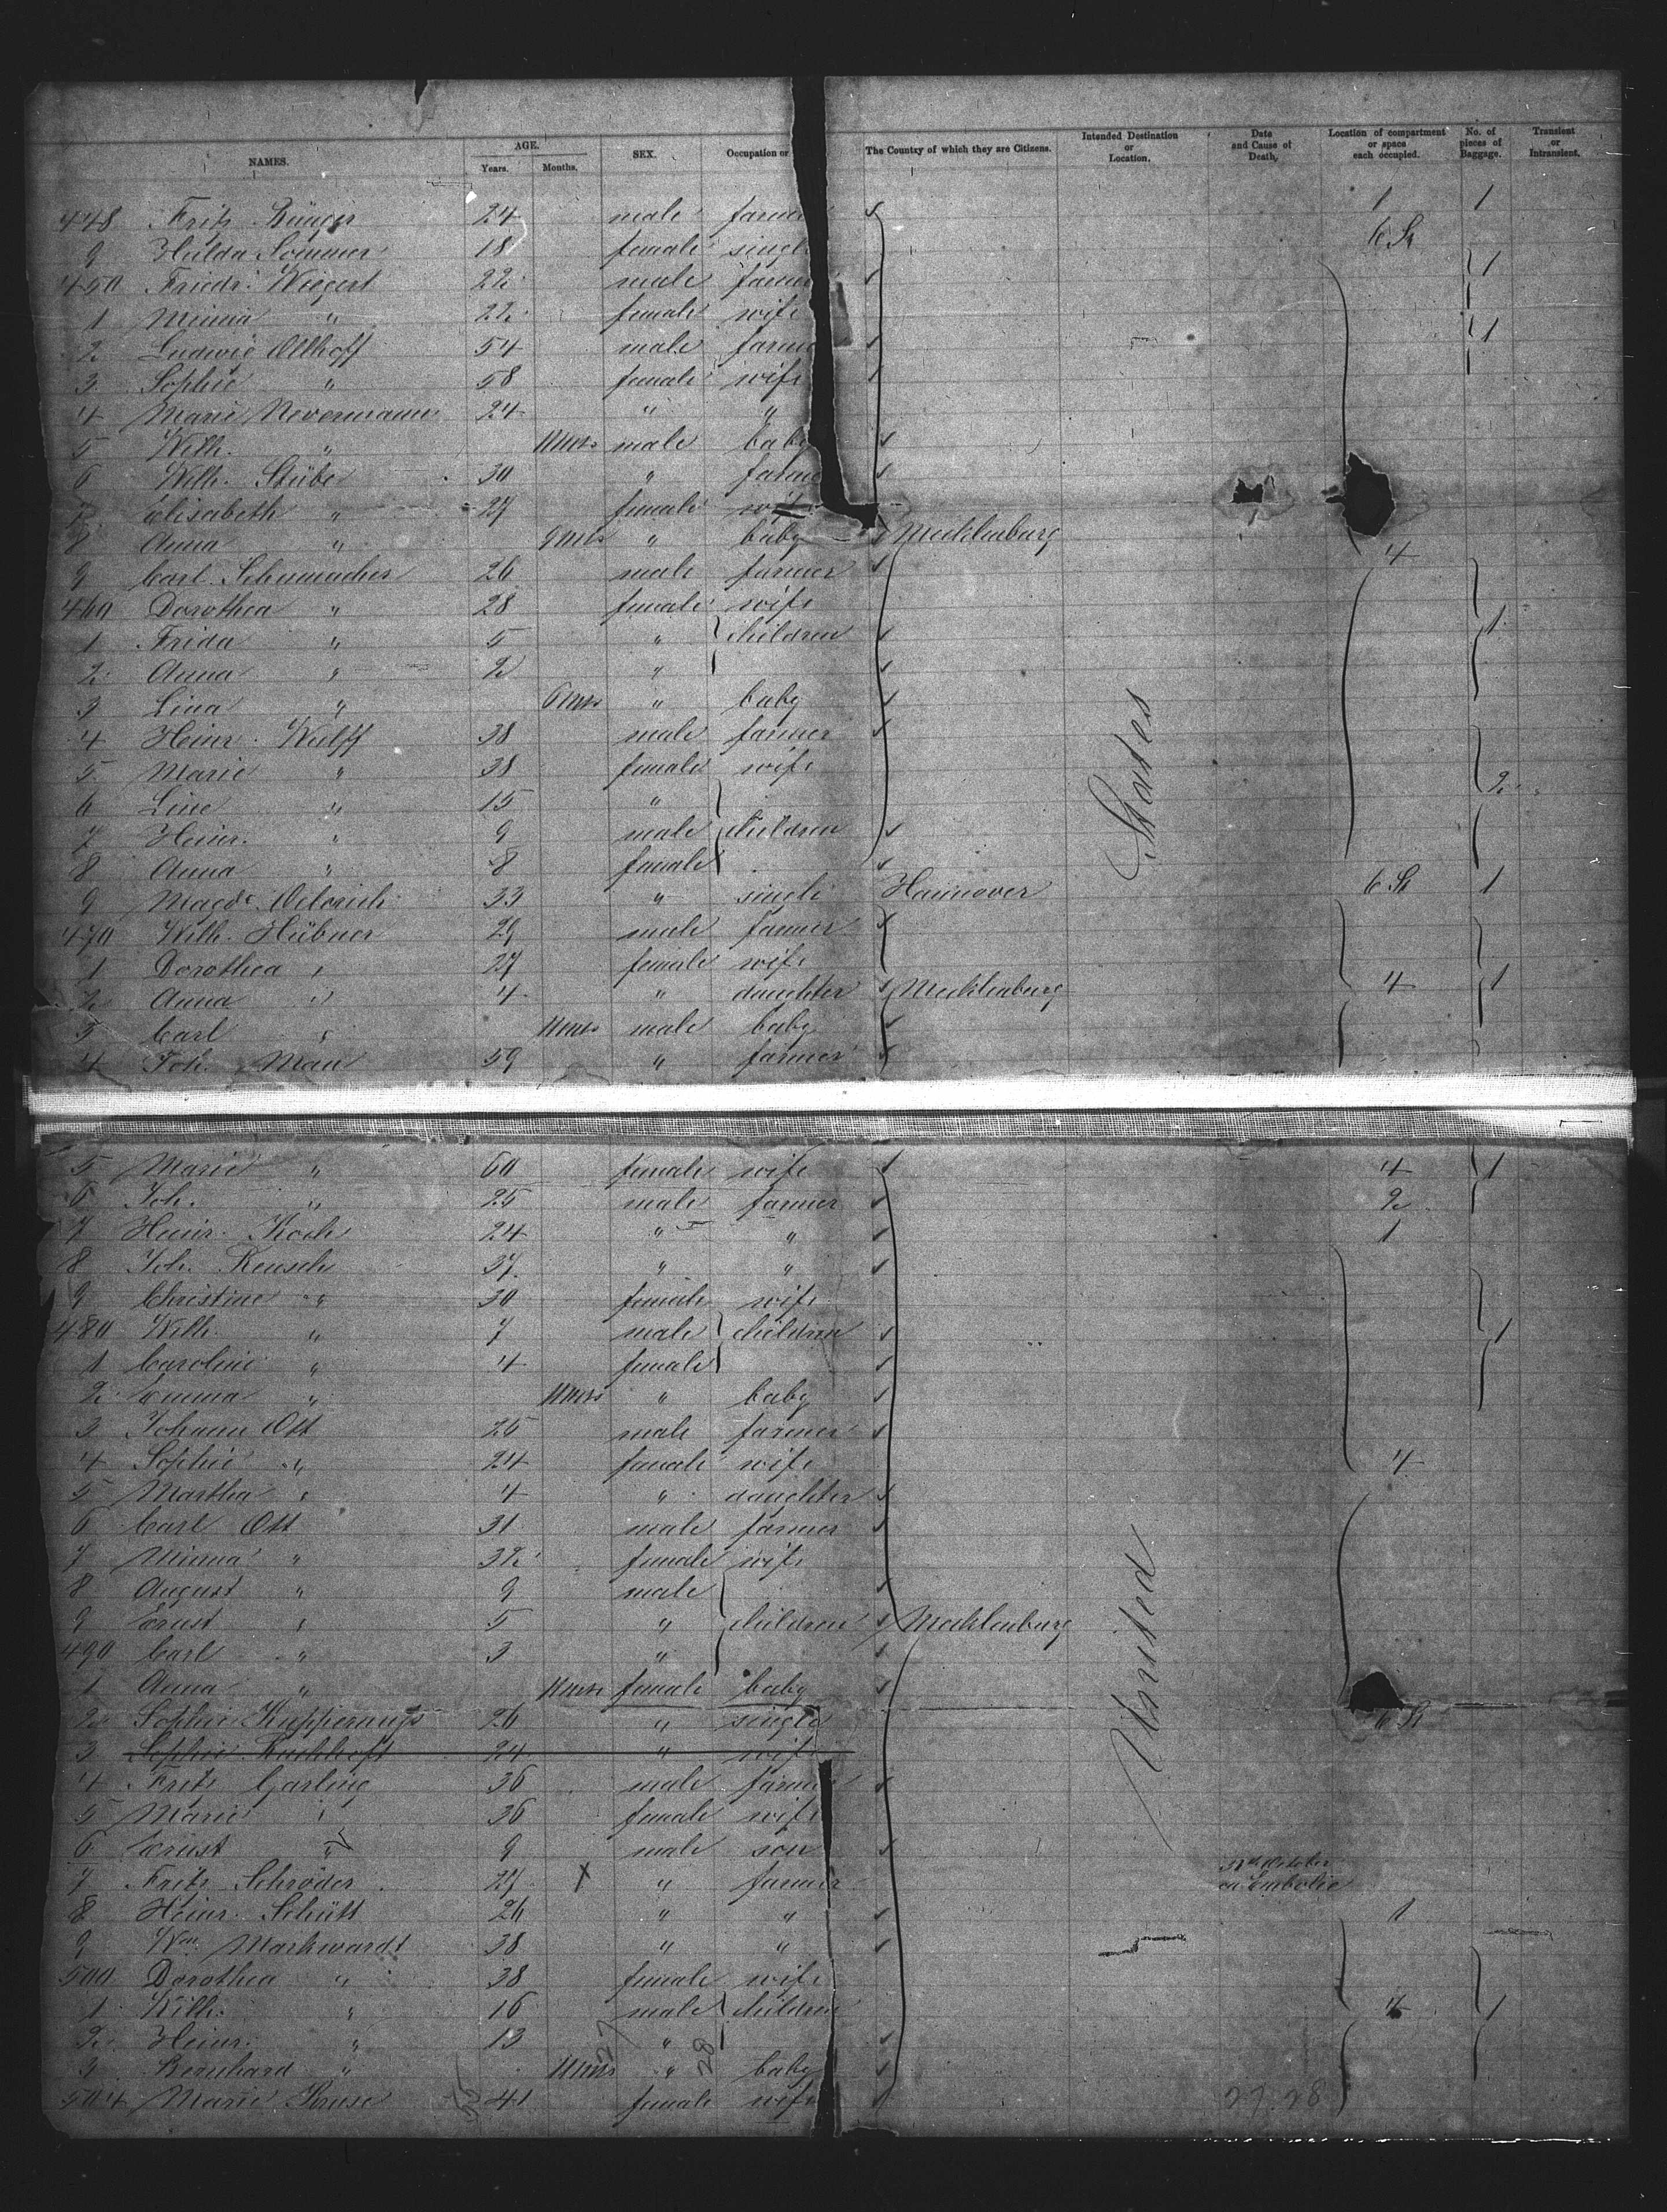 NAMES. AGE. Years. Months. SEX. Occupation or The Country of which they are Citizens. Intended Destination or Location. Date and Cause of Death. Location of compartment or space each occupied. No. of pieces of Baggage. Transient or Intransient.
448 Fritz 24 male farmer 1 1
9 Hulda Sommer 18 female single 6 St
450 Friedr. Wiegert 22 male farmer 1
1 Minna " 22 female wife
2 Ludwig Ollhoff 54 male farmer 1
3 Sophie " 58 female wife
4 Marie Nevermann 24 " "
5 Wilh. " 11 mos male baby
6 Wilh. Stübe 30 " farmer
7 Elisabeth " 27 female wife
8 Anna " 9 mos " baby Mecklenburg
9 Carl Schumacher 26 male farmer 4
460 Dorothea " 28 female wife
1 Frida " 5 " children 1
2 Anna " 2 "
3 Lina " 6 mos " baby
4 Heinr. Wulff 38 male farmer
5 Marie " 38 female wife 2
6 Line " 15 "
7 Heinr. " 9 male children
8 Anna " 8 female
9 Magd. 33 " single Hannover 6 St 1
470 Wilh. Hübner 29 male farmer
1 Dorothea " 27 female wife
2 Anna " 4 " daughter Mecklenburg 4 1
3 Carl " 11 mos male baby
4 Joh. Mau 59 " farmer
5 Marie " 60 female wife 4 1
6 Joh. " 25 male farmer 2
7 Heinr. Koch 24 " " 1
8 Joh. Reusch 37 " "
9 Christine " 30 female wife
480 Wilh. " 7 male children 1
1 Caroline " 4 female
2 Emma " 11 mos " baby
3 Johann Ott 25 male farmer
4 Sophie " 24 female wife 4
5 Martha " 4 " daughter
6 Carl Ott 31 male farmer
7 Minna " 32 female wife
8 August " 9 male
9 Ernst " 5 " children Mecklenburg
490 Carl " 3 "
1 Anna " 11 mos female baby
2 Sophie 26 " single 6 St
3 Sophie 24 " wife
4 Fritz Garling 36 male farmer
5 Marie " 36 female wife
6 Ernst " 9 male son
7 Fritz Schröder 27 X " farmer October Embolie
8 Heinr. Schütt 26 " " 1
9 Wm. Markwardt 38 " "
500 Dorothea " 38 female wife
1 Wilh. " 16 male children 4 1
2 Heinr. " 13 "
3 Bernhard " 11 mos " baby
504 Marie Kruse 41 female wife
United States
27 28
27. 28